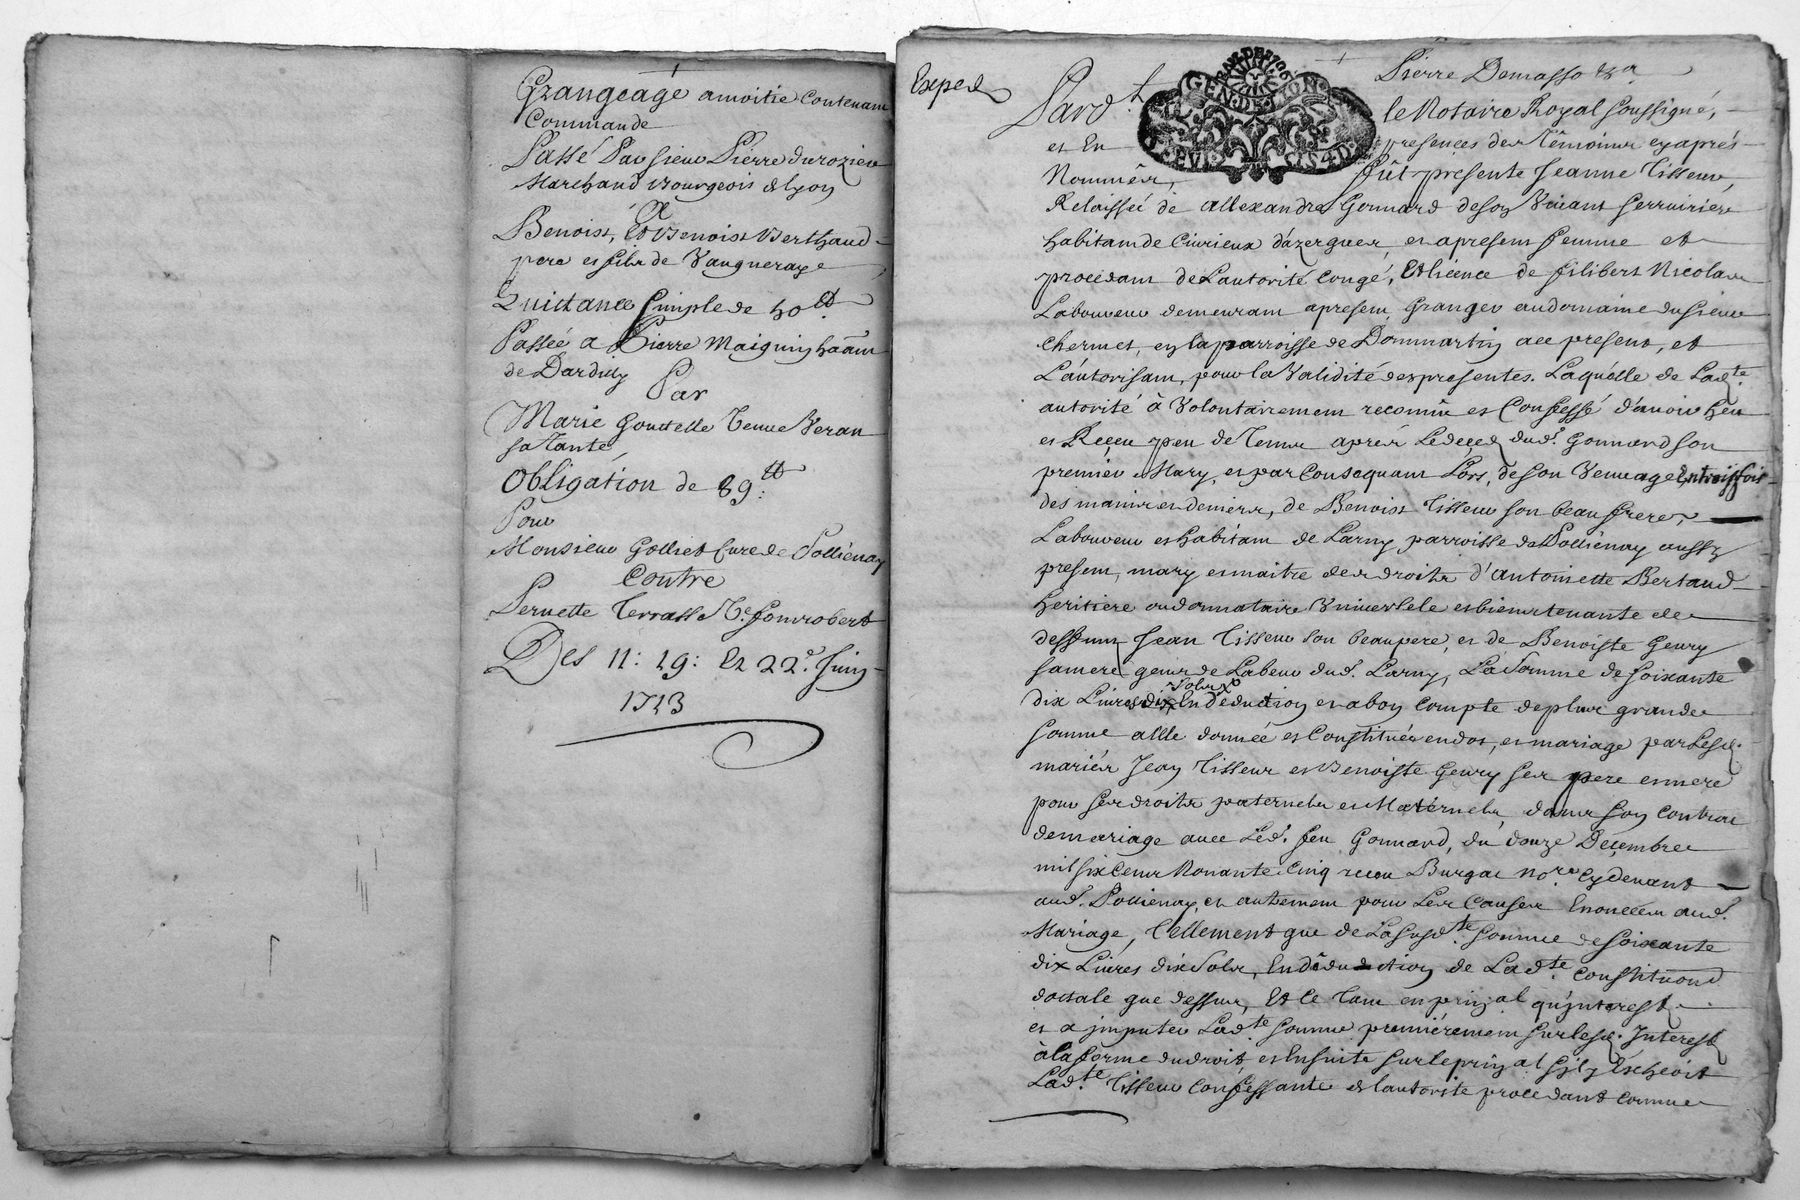 Grangeage a moitie Contenam
Commande
Passé Par sieur Pierre durozier
Marchand Bourgeois de Lyon
Et
Benoist, Et Benoist Berthaud
pere et fils de Vaugneraye
Quictance simple de 40 tt
Passée a Pierre Maignin ha'am
de Dardilly
Par
Marie Goutelle Veuve Veran
sa Tante
Obligation de 89 tt
Pour
Monsieur Golliet Curé de Pollienay
Contre
Pernette Terrasse Ve fonrobert
Des 11: 19: Et 22e Juin
1713
Exped
GEN·DE·LYON
Pierre Demasso
Pard.t le Notaire Royal soussigné,
et En presences des Témoins cyaprés
Nommés, fût presente Jeanne Tisseur,
Relaissée de allexandre Gonnard de son Vivant serrurier
habitam de Civrieux d'azergues, et apresent femme et
procedant de L'autorité Congé, Et licence de filibert Nicolas
Laboureur demeuram apresem Granger au domaine du sieur
Chermet, en la parroisse de Dommartin ace present, et
L'autorisam, pour la Validité des presentes. Laquelle de Lad.te
autorité à Volontairement reconnu et Confessé d'avoir heu
et Reçeu peu de Tems aprés Le deçed dud. Gonnard son
premier Mary, et par Consequam Lors, de son Veuvage, En trois fois
des mains et deniers, de Benoist Tisseur son beau frere,
Laboureur et habitam de Larny parroisse de Pollienay aussy
presem, mary et maitre des droits d'antoinette Bertaud
heritiere ou donnataire Vniverselle et bien tenante de
deffunt Jean Tisseur son beaupere, et de Benoiste Geury
sa mere gens de Labeur dud. Larny, La somme de soixante
sols
dix Livres dix En déduction et a bon Compte de plus grande
somme a Elle donnée et Constituée en dot, et mariage par Lesd.
mariés Jean Tisseur et Benoiste Geury ses pere et mere
pour ses droits paternels et Maternels, dans son Contrat
de mariage avec Led. feu Gonnard, du douze Decembre
mil six Cens Nonante Cinq receu Burgat no.re Cy devant
aud. Pollienay, et autrement pour Les Causes Enoncées aud.
Mariage, Tellement que de La susd.te somme de soixante
dix Livres dix sols, En déduction de Lad.te Constituon
dottale que dessus, Et Ce Tant en prin.al qu'jnterest
et a jmputer Lad.te somme premiérement sur lesd. Interest
à la forme du droit et Ensuite sur le prin.al s'il y Escheoit
Lad.te Tisseur Confessante et l'autorité procedant Comme